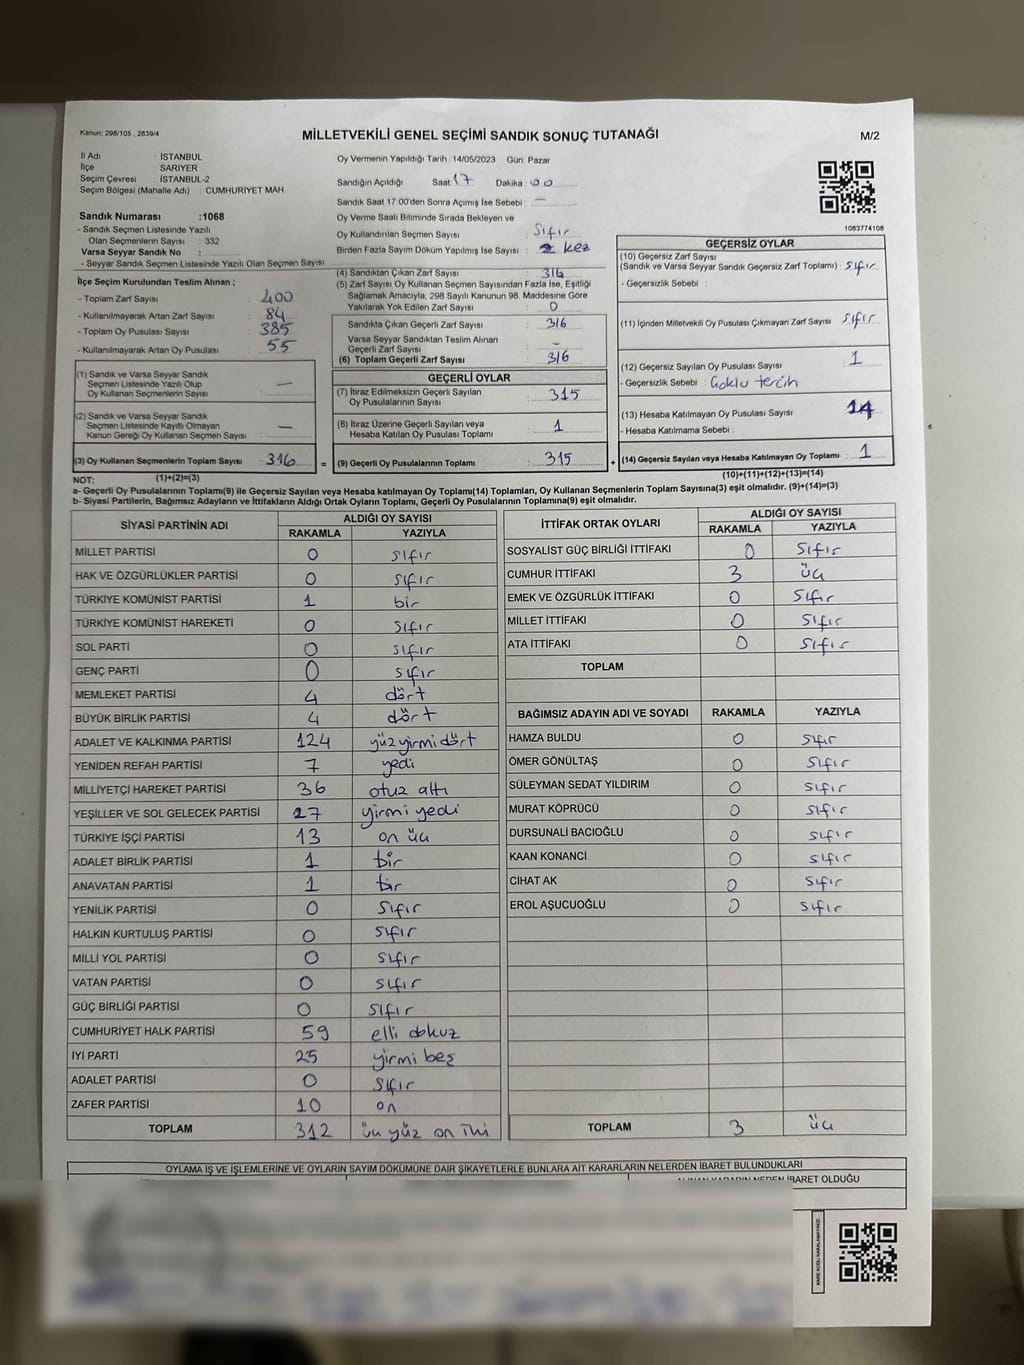 Kanun: 298/105 , 2839/4
MİLLETVEKİLİ GENEL SEÇİMİ SANDIK SONUÇ TUTANAĞI
M/2
İl Adı : İSTANBUL
İlçe : SARIYER
Seçim Çevresi : İSTANBUL-2
Seçim Bölgesi (Mahalle Adı) : CUMHURİYET MAH.
Oy Vermenin Yapıldığı Tarih :14/05/2023 Gün: Pazar
Sandığın Açıldığı Saat: 17 Dakika: 00
Sandık Saat 17:00'den Sonra Açımış İse Sebebi : —
Oy Verme Saati Bitiminde Sırada Bekleyen ve
Oy Kullandırılan Seçmen Sayısı : sıfır
Birden Fazla Sayım Döküm Yapılmış İse Sayısı : 2 kez
1083774106
Sandık Numarası :1068
- Sandık Seçmen Listesinde Yazılı
Olan Seçmenlerin Sayısı : 332
Varsa Seyyar Sandık No :
- Seyyar Sandık Seçmen Listesinde Yazılı Olan Seçmen Sayısı:
İlçe Seçim Kurulundan Teslim Alınan ;
- Toplam Zarf Sayısı : 400
- Kullanılmayarak Artan Zarf Sayısı : 84
- Toplam Oy Pusulası Sayısı : 385
- Kullanılmayarak Artan Oy Pusulası : 55
(1) Sandık ve Varsa Seyyar Sandık
Seçmen Listesinde Yazılı Olup
Oy Kullanan Seçmenlerin Sayısı : —
(2) Sandık ve Varsa Seyyar Sandık
Seçmen Listesinde Kayıtlı Olmayan
Kanun Gereği Oy Kullanan Seçmen Sayısı : —
(3) Oy Kullanan Seçmenlerin Toplam Sayısı : 316
(1)+(2)=(3)
(4) Sandıktan Çıkan Zarf Sayısı : 316
(5) Zarf Sayısı Oy Kullanan Seçmen Sayısından Fazla İse, Eşitliği
Sağlamak Amacıyla, 298 Sayılı Kanunun 98. Maddesine Göre
Yakılarak Yok Edilen Zarf Sayısı : 0
Sandıkta Çıkan Geçerli Zarf Sayısı : 316
Varsa Seyyar Sandıktan Teslim Alınan
Geçerli Zarf Sayısı : –
(6) Toplam Geçerli Zarf Sayısı : 316
GEÇERLİ OYLAR
(7) İtiraz Edilmeksizin Geçerli Sayılan
Oy Pusulalarının Sayısı : 315
(8) İtiraz Üzerine Geçerli Sayılan veya
Hesaba Katılan Oy Pusulası Toplamı : 1
= (9) Geçerli Oy Pusulalarının Toplamı : 315 +
GEÇERSİZ OYLAR
(10) Geçersiz Zarf Sayısı
(Sandık ve Varsa Seyyar Sandık Geçersiz Zarf Toplamı) : sıfır
- Geçersizlik Sebebi :
(11) İçinden Milletvekili Oy Pusulası Çıkmayan Zarf Sayısı : sıfır
(12) Geçersiz Sayılan Oy Pusulası Sayısı : 1
- Geçersizlik Sebebi : Çoklu tercih
(13) Hesaba Katılmayan Oy Pusulası Sayısı : 14
- Hesaba Katılmama Sebebi :
(14) Geçersiz Sayılan veya Hesaba Katılmayan Oy Toplamı : 1
(10)+(11)+(12)+(13)=(14)
NOT:
a- Geçerli Oy Pusulalarının Toplamı(9) ile Geçersiz Sayılan veya Hesaba katılmayan Oy Toplamı(14) Toplamları, Oy Kullanan Seçmenlerin Toplam Sayısına(3) eşit olmalıdır. (9)+(14)=(3)
b- Siyasi Partilerin, Bağımsız Adayların ve İttifakların Aldığı Ortak Oyların Toplamı, Geçerli Oy Pusulalarının Toplamına(9) eşit olmalıdır.
SİYASİ PARTİNİN ADI ALDIĞI OY SAYISI
RAKAMLA YAZIYLA
MİLLET PARTİSİ 0 sıfır
HAK VE ÖZGÜRLÜKLER PARTİSİ 0 sıfır
TÜRKİYE KOMÜNİST PARTİSİ 1 bir
TÜRKİYE KOMÜNİST HAREKETİ 0 sıfır
SOL PARTİ 0 sıfır
GENÇ PARTİ 0 sıfır
MEMLEKET PARTİSİ 4 dört
BÜYÜK BİRLİK PARTİSİ 4 dört
ADALET VE KALKINMA PARTİSİ 124 yüzyirmidört
YENİDEN REFAH PARTİSİ 7 yedi
MİLLİYETÇİ HAREKET PARTİSİ 36 otuz altı
YEŞİLLER VE SOL GELECEK PARTİSİ 27 yirmi yedi
TÜRKİYE İŞÇİ PARTİSİ 13 on üç
ADALET BİRLİK PARTİSİ 1 bir
ANAVATAN PARTİSİ 1 bir
YENİLİK PARTİSİ 0 sıfır
HALKIN KURTULUŞ PARTİSİ 0 sıfır
MİLLİ YOL PARTİSİ 0 sıfır
VATAN PARTİSİ 0 sıfır
GÜÇ BİRLİĞİ PARTİSİ 0 sıfır
CUMHURİYET HALK PARTİSİ 59 elli dokuz
İYİ PARTİ 25 yirmi beş
ADALET PARTİSİ 0 sıfır
ZAFER PARTİSİ 10 on
TOPLAM 312 üç yüz on iki
İTTİFAK ORTAK OYLARI ALDIĞI OY SAYISI
RAKAMLA YAZIYLA
SOSYALİST GÜÇ BİRLİĞİ İTTİFAKI 0 sıfır
CUMHUR İTTİFAKI 3 üç
EMEK VE ÖZGÜRLÜK İTTİFAKI 0 sıfır
MİLLET İTTİFAKI 0 sıfır
ATA İTTİFAKI 0 sıfır
TOPLAM
BAĞIMSIZ ADAYIN ADI VE SOYADI RAKAMLA YAZIYLA
HAMZA BULDU 0 sıfır
ÖMER GÖNÜLTAŞ 0 sıfır
SÜLEYMAN SEDAT YILDIRIM 0 sıfır
MURAT KÖPRÜCÜ 0 sıfır
DURSUNALİ BACIOĞLU 0 sıfır
KAAN KONANCİ 0 sıfır
CİHAT AK 0 sıfır
EROL AŞUCUOĞLU 0 sıfır
TOPLAM 3 üç
OYLAMA İŞ VE İŞLEMLERİNE VE OYLARIN SAYIM DÖKÜMÜNE DAİR ŞİKAYETLERLE BUNLARA AİT KARARLARIN NELERDEN İBARET BULUNDUKLARI
ALINAN KARARIN NEDEN İBARET OLDUĞU
KARE KODU KARALAMAYINIZ!